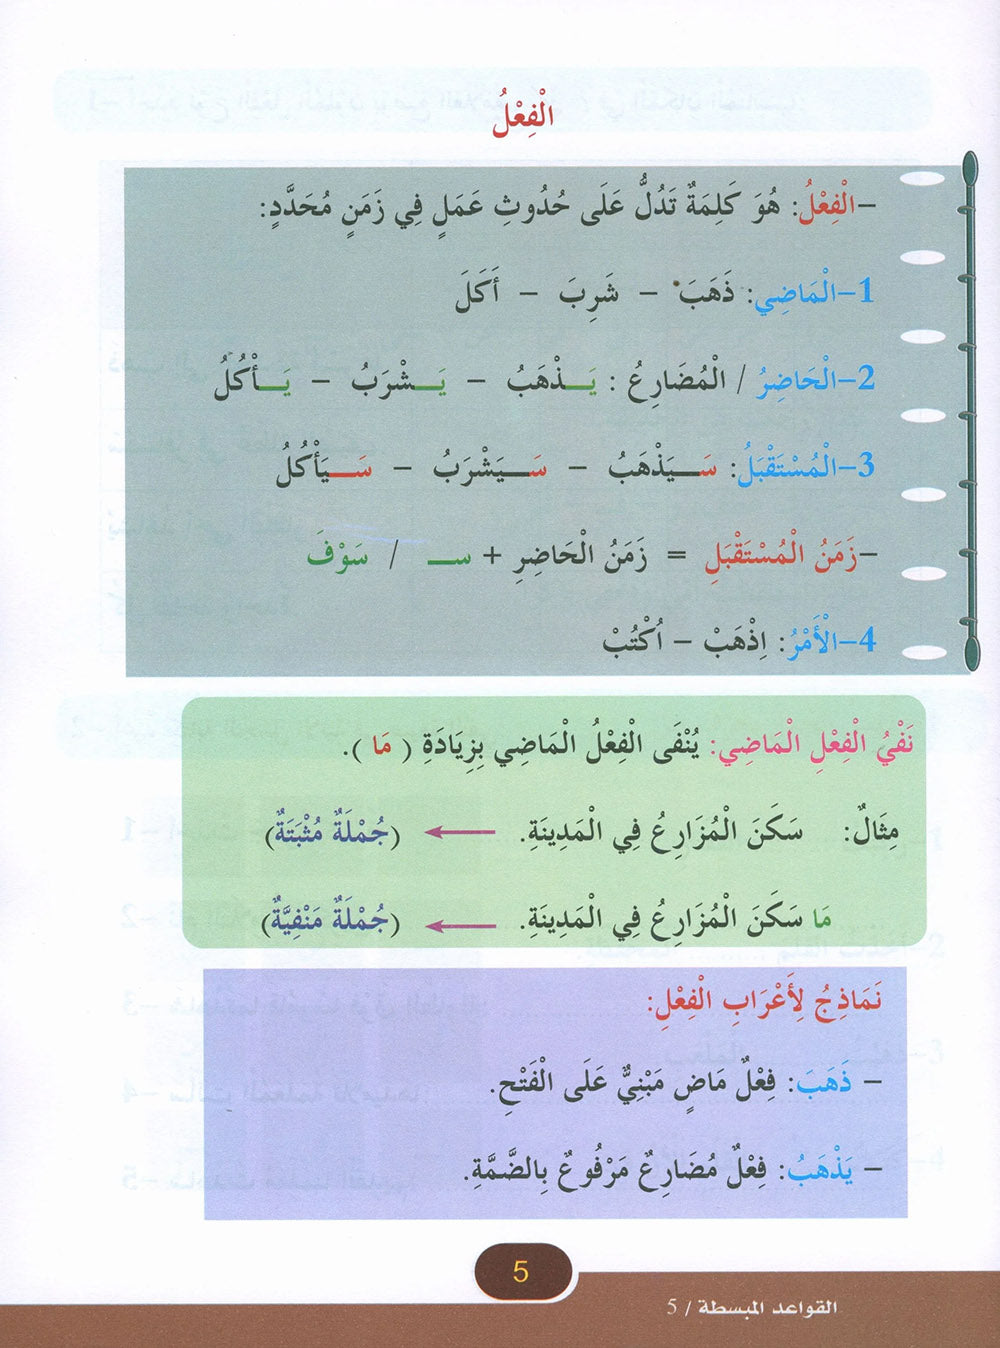 الْفِعْلُ
–الْفِعْلُ: هُوَ كَلِمَةٌ تَدُلُّ عَلَى حُدُوثِ عَمَلٍ فِي زَمَنٍ مُحَدَّدٍ:
1–الْمَاضِي: ذَهَبَ – شَرِبَ – أَكَلَ
2–الْحَاضِرُ / الْمُضَارِعُ : يَـــذْهَبُ – يَـــشْرَبُ – يَـــأْكُلُ
3–الْمُسْتَقْبَلُ: سَـــيَذْهَبُ – سَـــيَشْرَبُ – سَـــيَأْكُلُ
–زَمَنُ الْمُسْتَقْبَلِ = زَمَنُ الْحَاضِرِ + سـ / سَوْفَ
4–الْأَمْرُ: اِذْهَبْ – اُكْتُبْ
نَفْيُ الْفِعْلِ الْمَاضِي: يُنْفَى الْفِعْلُ الْمَاضِي بِزِيَادَةِ ( مَا ).
مِثَالٌ: سَكَنَ الْمُزَارِعُ فِي الْمَدِينَةِ. ← (جُمْلَةٌ مُثْبَتَةٌ)
مَا سَكَنَ الْمُزَارِعُ فِي الْمَدِينَةِ. ← (جُمْلَةٌ مَنْفِيَّةٌ)
نَمَاذِجُ لِأَعْرَابِ الْفِعْلِ:
– ذَهَبَ: فِعْلٌ مَاضٍ مَبْنِيٌّ عَلَى الْفَتْحِ.
– يَذْهَبُ: فِعْلٌ مُضَارِعٌ مَرْفُوعٌ بِالضَّمَّةِ.
5
القواعد المبسطة / 5